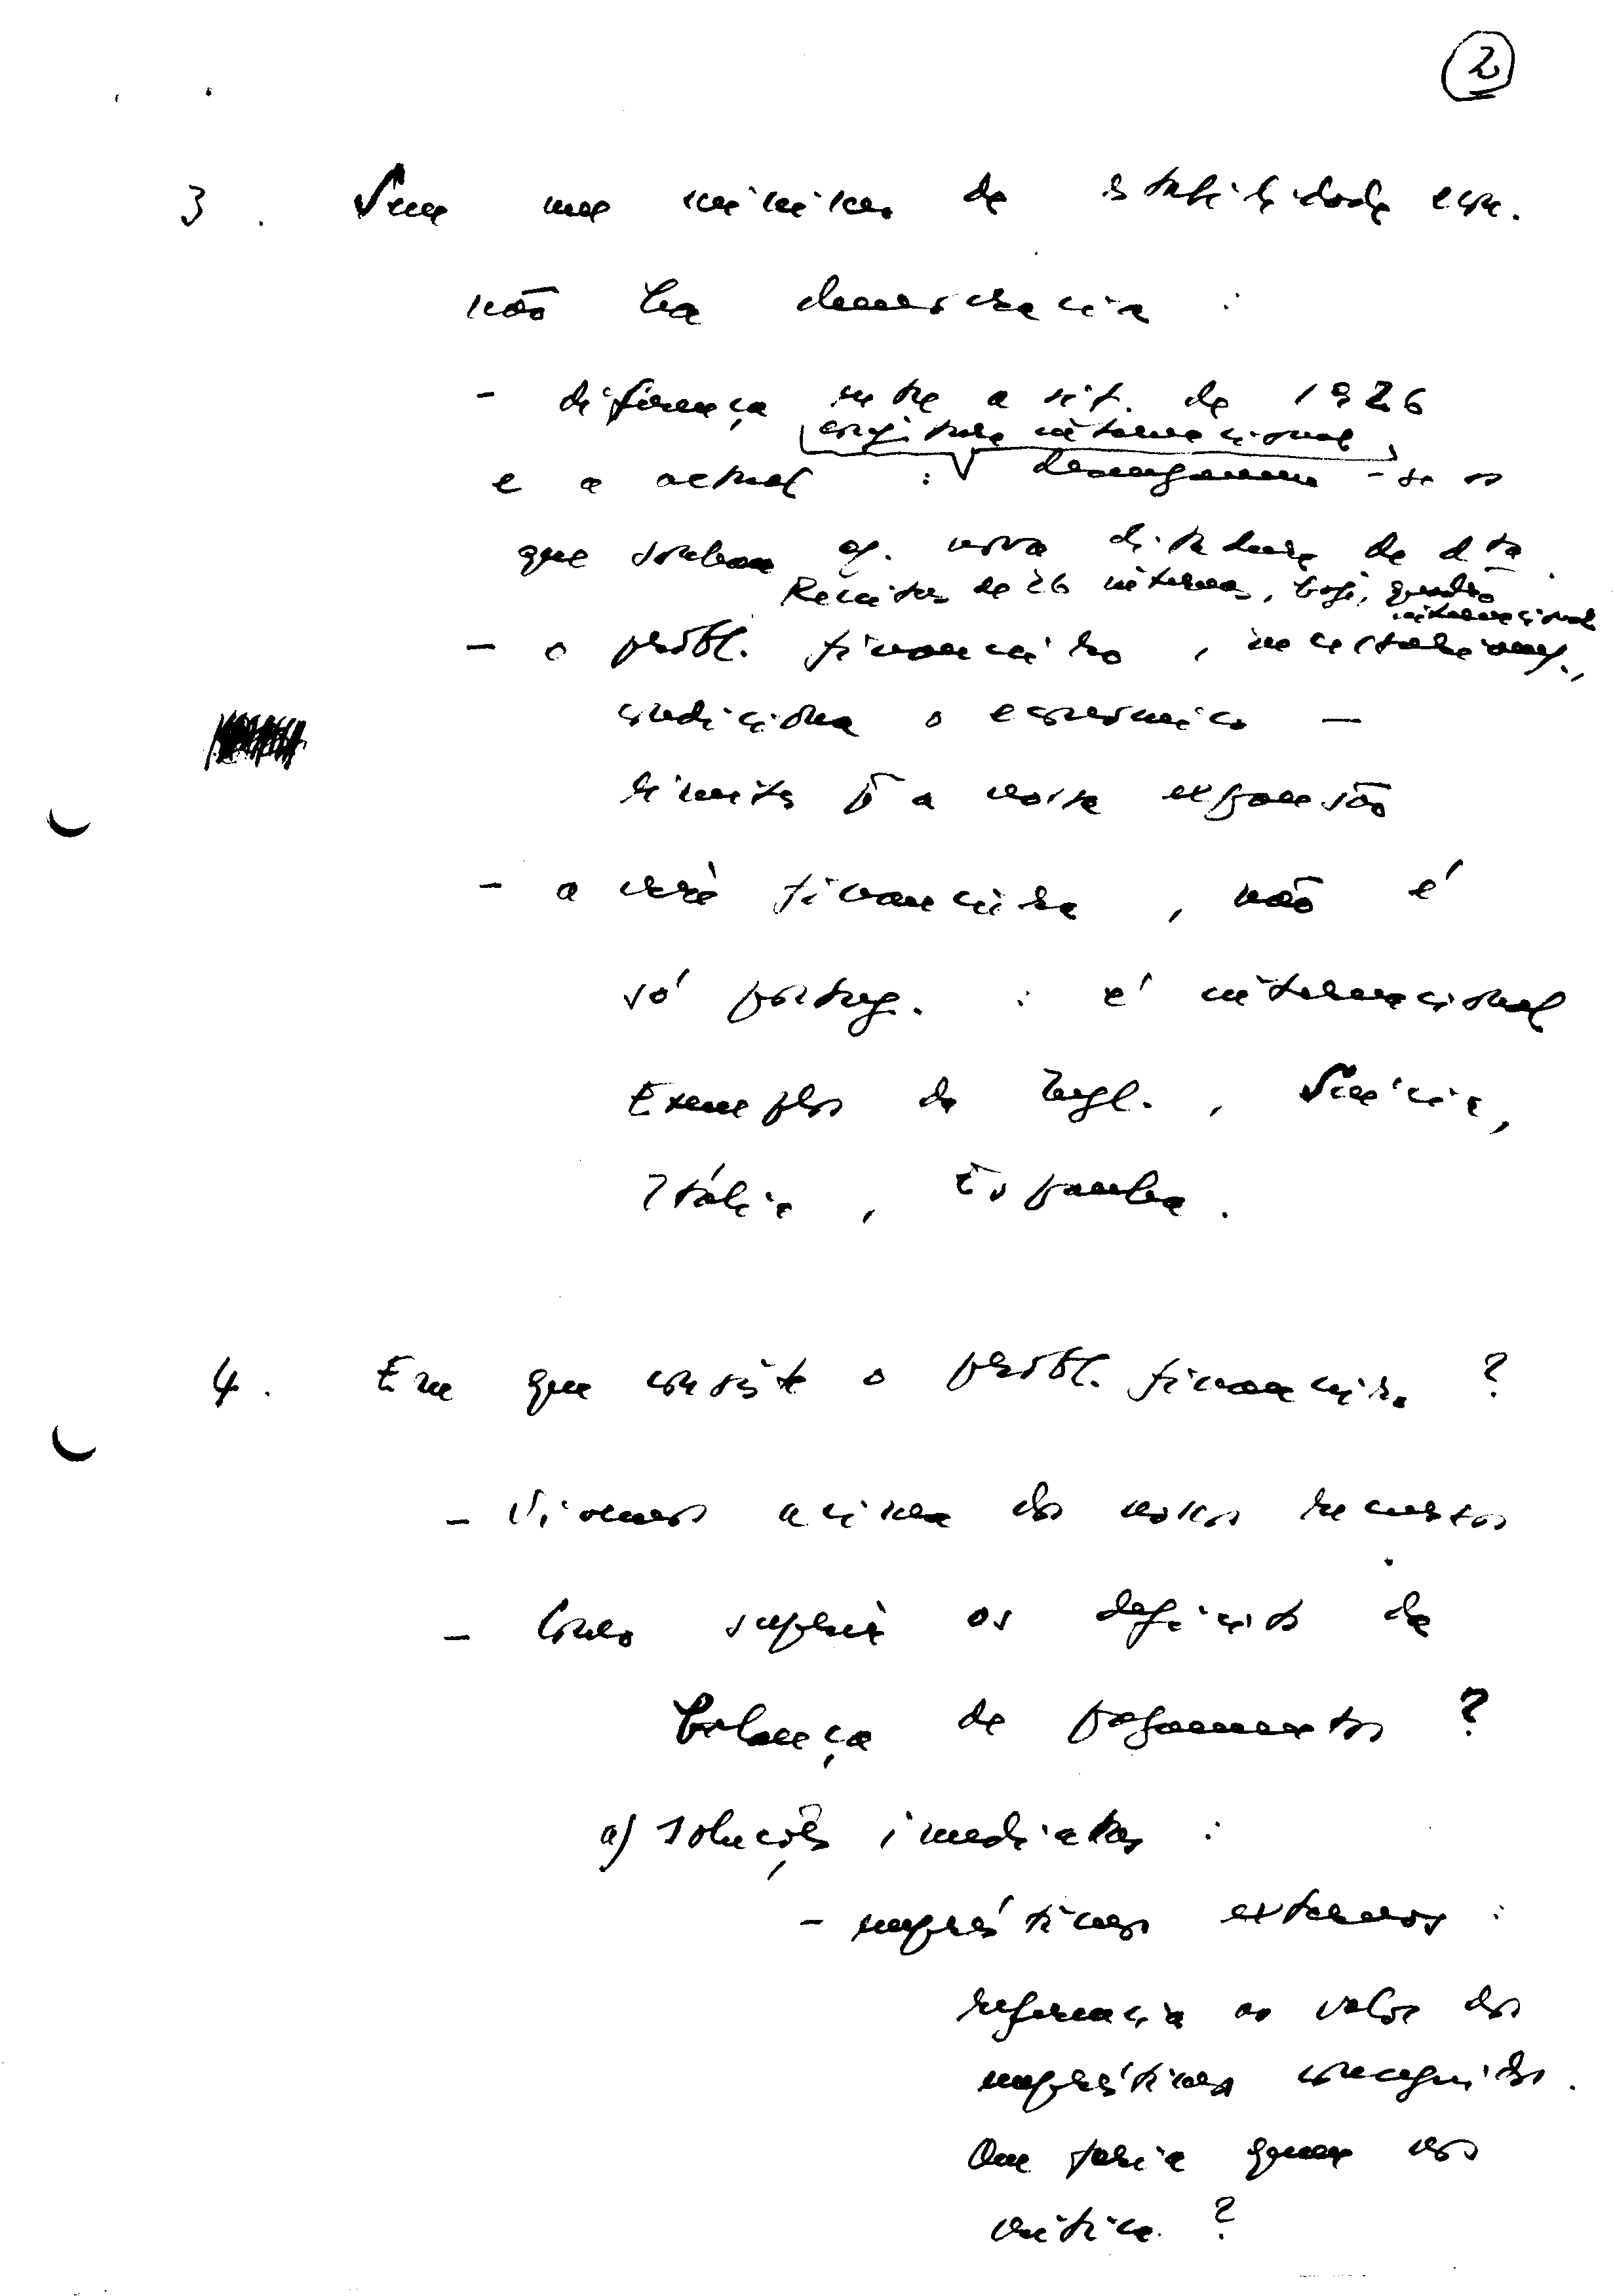 2
3. Sem um mínimo de estabilidade econ.
não ha democracia :
- diferença entre a sit. de 1926
conjuntura internacional
e a actual : desenganem-se os
que sonham c/. nova ditadura de dta.
Receitas de 26 internas, hoje, quadro
internacional
- o probl. financeiro,
condiciona o económico -
limites p̄ a nossa expansão
- a crise financeira, não é
só portug. : é internacional
Exemplos da Ingl., Suécia,
Itália, Espanha.
4. Em que consiste o probl. financeiro ?
- Vivemos acima dos nossos recursos
- Como suprir os deficits da
balança de pagamentos ?
a) soluções imediatas :
- empréstimos externos :
referencia ao valor dos
empréstimos conseguidos.
Que faria quem nos
critica ?